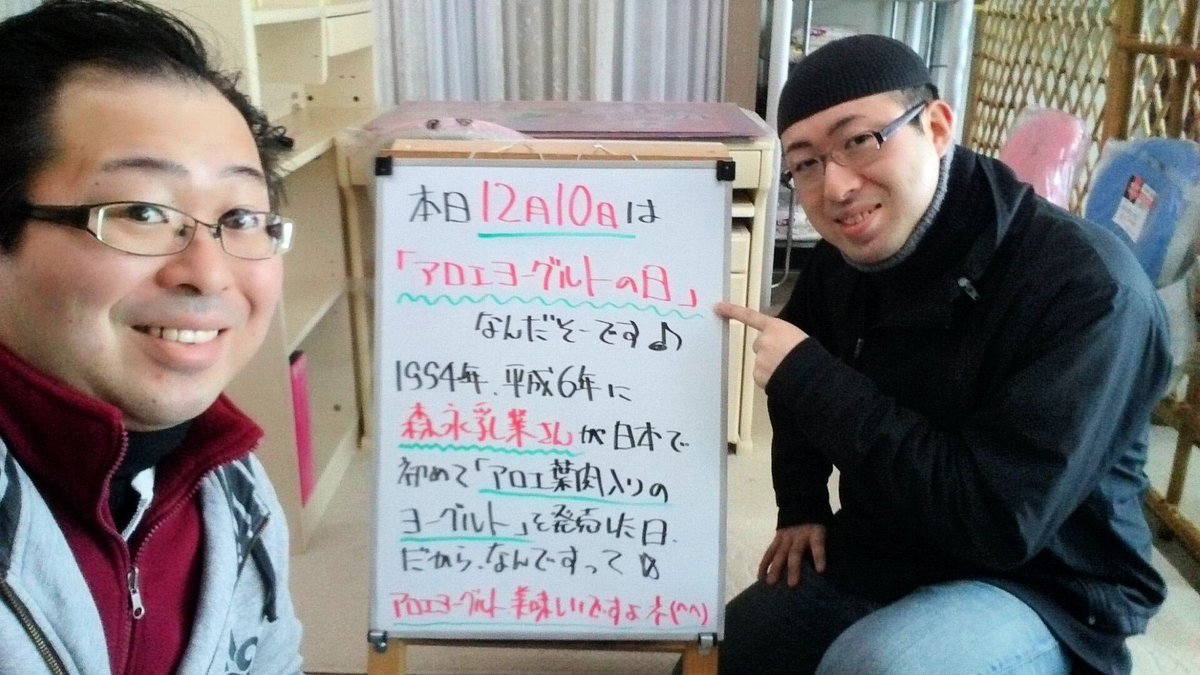 本日12月10日は
「アロエヨーグルトの日」
なんだそーです♪
1994年、平成6年に
森永乳業さんが日本で
初めて「アロエ葉肉入りの
ヨーグルト」を発売した日、
だから、なんですって☆
アロエヨーグルト美味しいですよネ(^^)